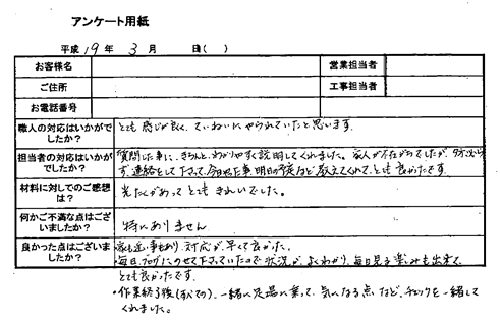 アンケート用紙
平成 19 年 3 月 日( )
お客様名
営業担当者
ご住所
工事担当者
お電話番号
職人の対応はいかがでしたか?
とても感じが良く、ていねいにやられていたと思います。
担当者の対応はいかがでしたか?
質問した事に、きちんとわかりやすく説明してくれました。家人が不在がちでしたが、
ず連絡をして下さって、今日やった事、明日の予定など教えてくれて、とても良かったです。
材料に対してのご感想は?
光たくがあってとてもきれいでした。
何かご不満な点はございましたか?
特にありません
良かった点はございましたか?
家も近い事もあり、対応が早くて良かった。
毎日、ブログにのせて下さっていたので状況がよくわかり、毎日見る楽しみも出来て、
とても良かったです。
・作業終了後(すべての)、一緒に足場に乗って、気になる点など、チェックを一緒にしてくれました。